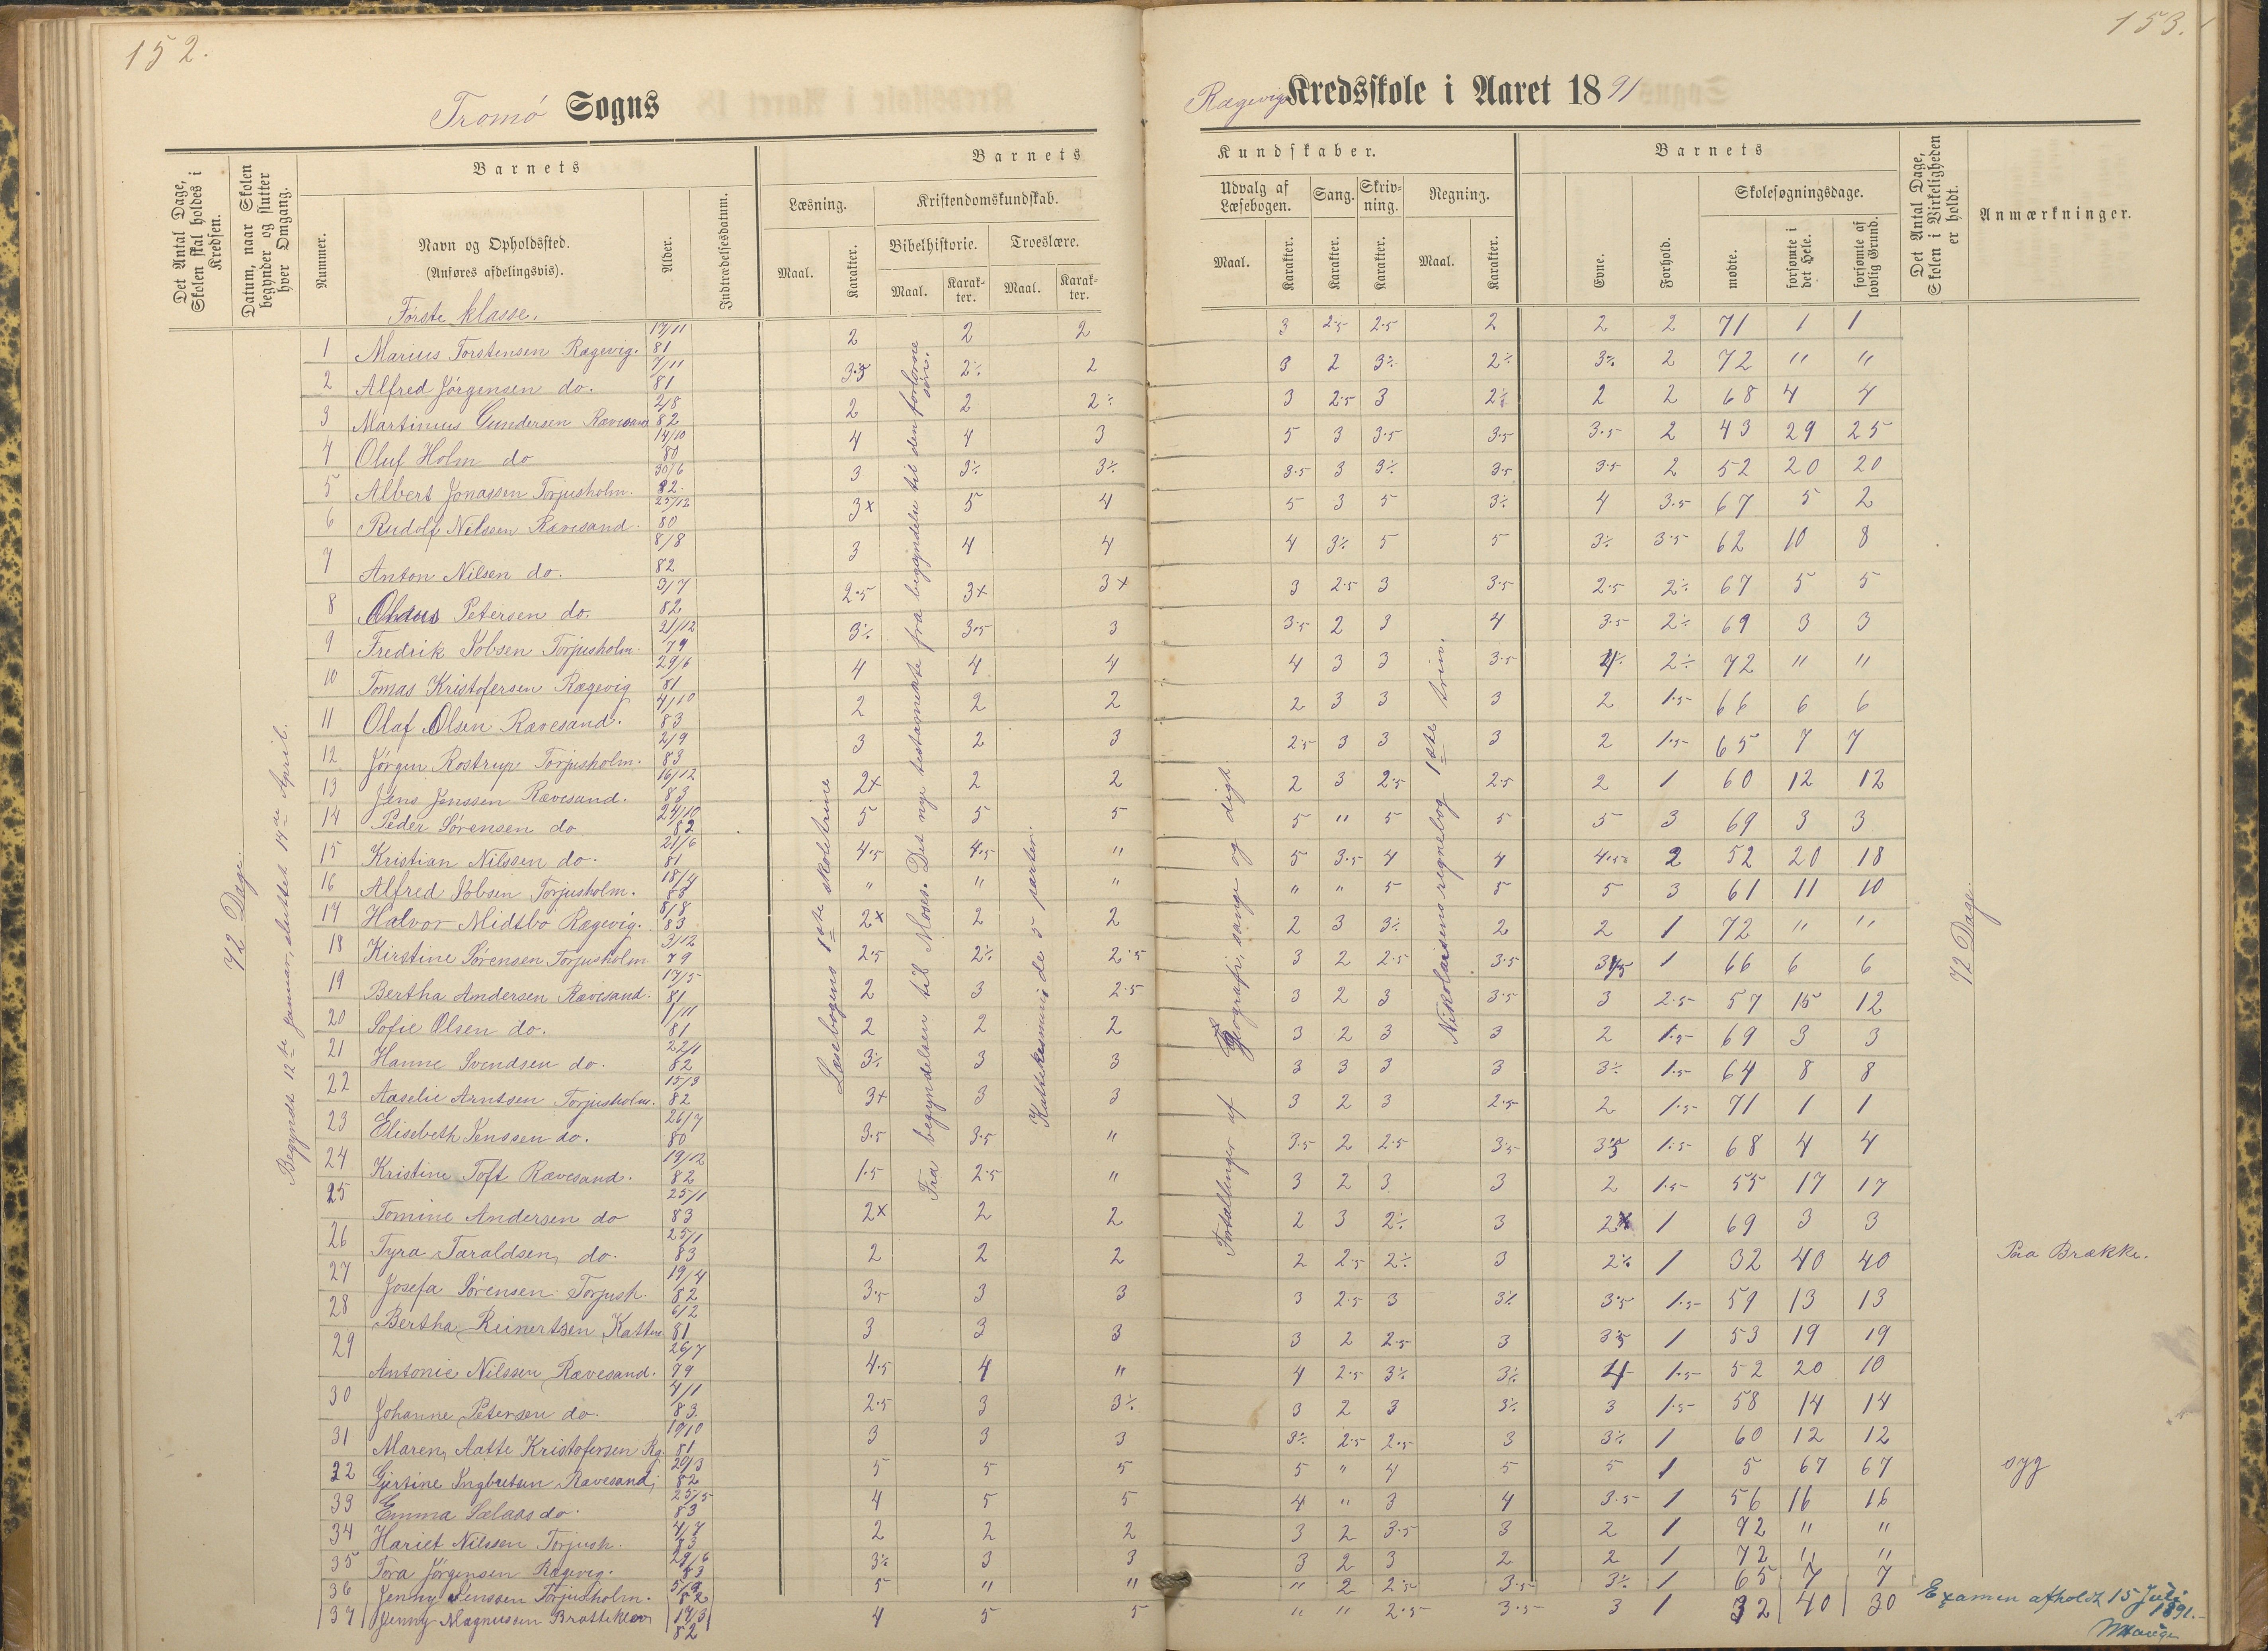 152.
Tromö Sogns
Det Antal Dage, Skolen skal holdes i Kredsen.
Datum, naar Skolen begynder og slutter hver Omgang.
Barnets
Nummer.
Navn og Opholdssted.
(Anføres afdelingsvis).
Alder.
Indtrædelsesdatum.
Barnets
Læsning.
Kristendomskundskab.
Maal.
Karakter.
Bibelhistorie.
Troeslære.
Maal.
Karak-
ter.
Maal.
Karak-
ter.
Første klasse.
72 Dage.
Begyndt 12te januar, sluttet 14de April.
Læsebogens 1ste skoletrine
Fra begyndelsen til Moses. Det nye testamente fra begyndelse til den forlorne søn.
Kattekesmuni, de 5 parter.
1 Marius Torstensen Rægevig. 17/11 81 2 2 2
2 Alfred Jörgensen do. 7/11 81 3.5 2÷ 2
3 Martinius Gundersen Rævesand 2/8 82 2 2 2÷
4 Oluf Holm do 14/10 80 4 4 3
5 Albert Jonassen Torjusholm. 30/6 82. 3 3÷ 3÷
6 Rudolf Nilssen Rævesand. 25/12 80 3x 5 4
7 Anton Nilsen do. 8/8 82 3 4 4
8 Petersen do. 3/7 82 2.5 3x 3x
9 Fredrik Jobsen Torjusholm. 21/12 79 3÷ 3.5 3
10 Tomas Kristofersen Rægevig 29/6 81 4 4 4
11 Olaf Olsen Rævesand. 4/10 83 2 2 2
12 Jørgen Rostrup Torjusholm. 2/9 83 3 2 3
13 Jens Jenssen Rævesand. 16/12 83 2x 2 2
14 Peder Sörensen do 24/10 82 5 5 5
15 Kristian Nilssen do. 21/6 81 4.5 4.5 "
16 Alfred Jobsen Torjusholm. 18/4 83 " " "
17 Halvor Midtbö Rægevig. 8/8 83 2x 2 2
18 Kirstine Sörensen Torjusholm 3/12 79 2.5 2÷ 2.5
19 Bertha Andersen Rævesand. 17/5 81 2 3 2.5
20 Sofie Olsen do. 1/11 81 2 2 2
21 Hanne Svendsen do. 22/1 82 3÷ 3 3
22 Aaselie Arntsen Torjusholm. 15/3 82 3x 3 3
23 Elisebeth Jenssen do. 26/7 80 3.5 3.5 "
24 Kristine Toft Rævesand. 19/12 82 1.5 2.5 "
25 Tomine Andersen do 25/1 83 2x 2 2
26 Tyra Taraldsen do. 25/1 83 2 2 2
27 Josefa Sörensen Torjush. 19/4 82 3.5 3 3
28 Bertha Reinertsen 6/2 81 3 3 3
29 Antonie Nilssen Rævesand. 26/7 79 4.5 4 "
30 Johanne Petersen do. 4/1 83. 2.5 3 3÷
31 Maren Aatte Kristofersen Rg. 19/10 81 3 3 3
32 Gjertine Ingbretsen Rævesand 20/3 82 5 5 5
33 Emma do. 25/5 83 4 5 5
34 Hariet Nilssen Torjush. 4/7 83 2 2 2
35 Tora Jørgensen Rægevig. 29/6 83 3÷ 3 3
36 Jenny Jenssen Torjusholm. 5/9 82 5 " "
37 Jenny Magnussen Bratteklev 17/3 82 4 5 5
153.
Rægevigs Kredsskole i Aaret 1891
Kundskaber.
Udvalg af
Læsebogen.
Sang.
Skriv-
ning.
Regning.
Maal.
Karakter.
Karakter.
Karakter.
Maal.
Karakter.
Barnets
Evne.
Forhold.
Skolesøgningsdage.
mødte.
forsømte i det Hele.
forsømte af lovlig Grund.
Det Antal Dage, Skolen i Virkeligheden er holdt.
Anmærkninger.
Fotællinger af geografi, sange og digt.
Nikolaisens regnebog 1ste trin.
72 Dage.
3 2.5 2.5 2 2 2 71 1 1
3 2 3÷ 2÷ 3÷ 2 72 " "
3 2.5 3 2÷ 2 2 68 4 4
5 3 3.5 3.5 3.5 2 43 29 25
3.5 3 3÷ 3.5 3.5 2 52 20 20
5 3 5 3÷ 4 3.5 67 5 2
4 3÷ 5 5 3÷ 3.5 62 10 8
3 2.5 3 3.5 2.5 2÷ 67 5 5
3.5 2 3 4 3.5 2÷ 69 3 3
4 3 3 3.5 4÷ 2÷ 72 " "
2 3 3 3 2 1.5 66 6 6
2.5 3 3 3 2 1.5 65 7 7
2 3 2.5 2.5 2 1 60 12 12
5 " 5 5 5 3 69 3 3
5 3.5 4 4 4.5 2 52 20 18
" " 5 5 5 3 61 11 10
2 3 3÷ 2 2 1 72 " "
3 2 2.5 3.5 3.5 1 66 6 6
3 2 3 3.5 3 2.5 57 15 12
3 2 3 3 2 1.5 69 3 3
3 3 3 3 3÷ 1.5 64 8 8
3 2 3 2.5 2 1.5 71 1 1
3.5 2 2.5 3.5 3.5 1.5 68 4 4
3 2 3 3 2 1.5 55 17 17
2 3 2÷ 3 2x 1 69 3 3
2 2.5 2÷ 3 2÷ 1 32 40 40 Paa Brække.
3 2.5 3 3÷ 3.5 1.5 59 13 13
3 2 2.5 3 3.5 1 53 19 19
4 2.5 3÷ 3÷ 4 1.5 52 20 10
3 2 3 3÷ 3 1.5 58 14 14
3÷ 2.5 2.5 3 3÷ 1 60 12 12
5 " 4 5 5 1 5 67 67 syg
4 " 3 4 3.5 1 56 16 16
3 2 3.5 3 2 1 72 " "
3 2 3 2 2 1 72 " "
" 2 2.5 3.5 3÷ 1 65 7 7
" " 2.5 3.5 3 1 32 40 30
Examen afholdt 15 Juli
1891.-